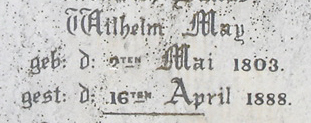 Wilhelm May
geb: d: 2ten Mai 1803.
gest: d: 16ten April 1888.